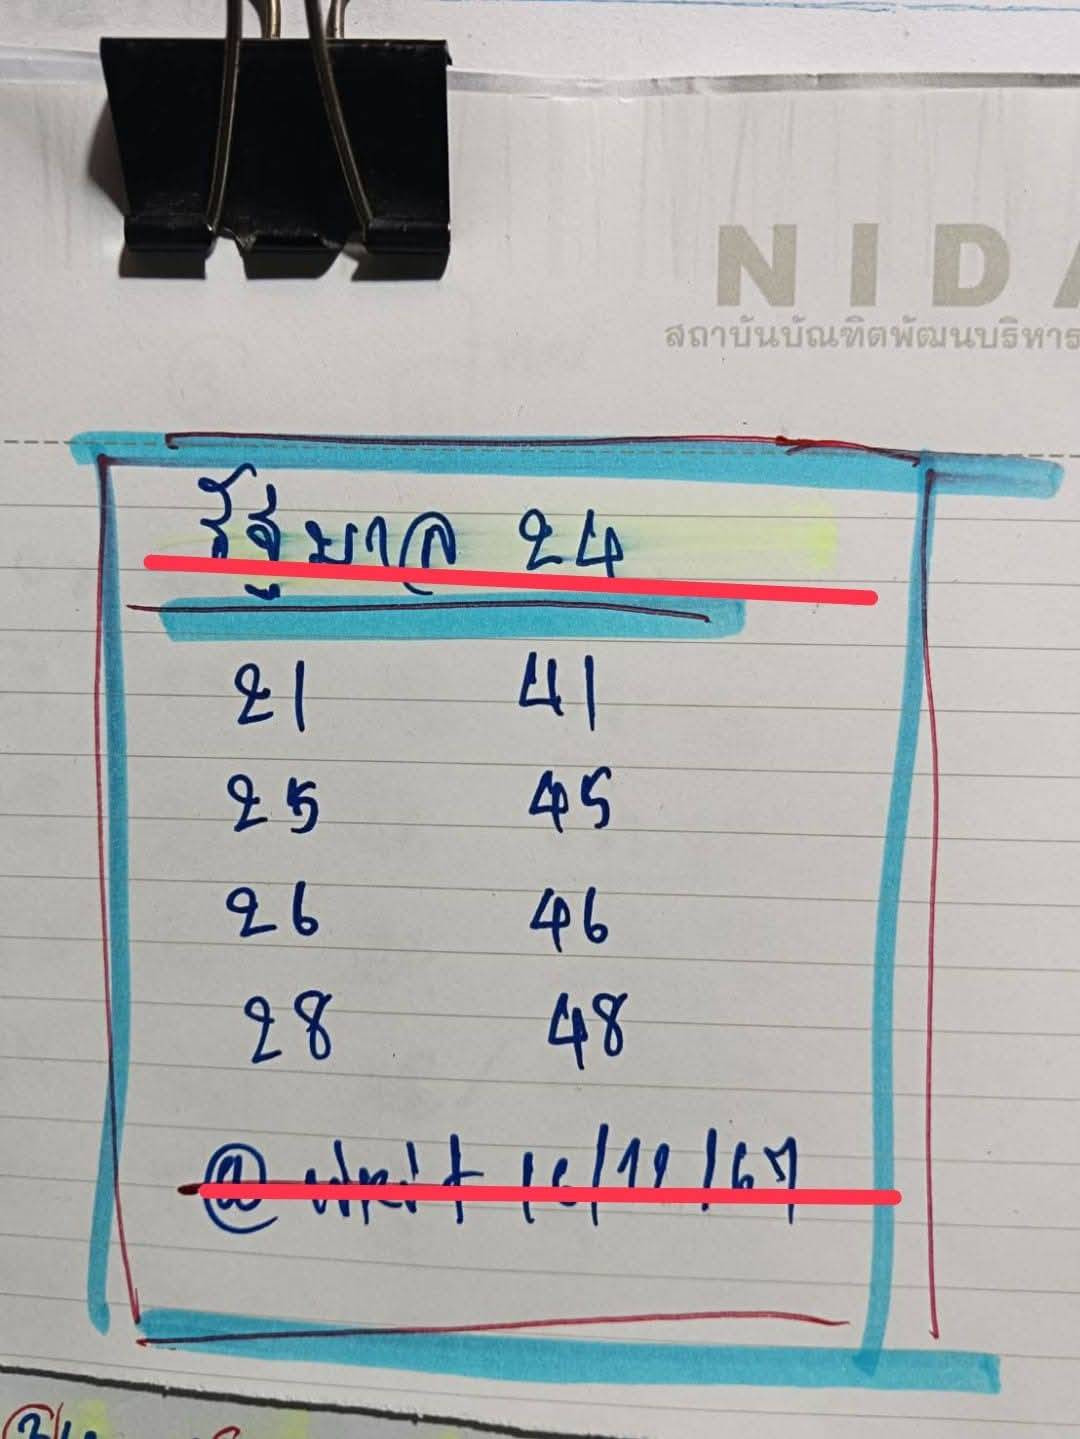 NIDA
สถาบันบัณฑิตพัฒนบริหาร
รัฐบาล 24
21 41
25 45
26 46
28 48
@ 16/12/67